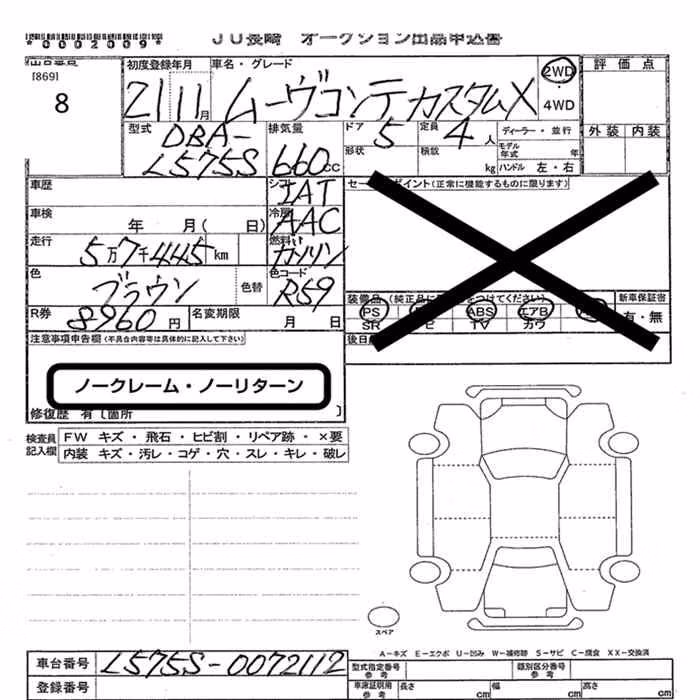 *0002009*
JU長崎 オークション出品申込書
[869]
8
初度登録年月
21 11月
車名・グレード
ムーヴコンテ カスタムX
2WD
・
4WD
評価点
外装 内装
型式
DBA-
L575S
排気量
660cc
ドア 5
形状
定員 4人
積載 kg
ディーラー・並行
モデル年式 年
ハンドル 左・右
車歴
シフト
IAT
車検 年 月( 日)
冷房
AAC
走行 5万7千445km
燃料
ガソリン
色 ブラウン
色替
色コード
R59
R券 8960円
名変期限 月 日
セールスポイント(正常に機能するものに限ります)
PS
ABS
エアB
SR
TV
カワ
新車保証書
有・無
注意事項申告欄(不具合内容等は具体的に記入して下さい)
ノークレーム・ノーリターン
修復歴 有〔箇所 〕
検査員記入欄
FW キズ・飛石・ヒビ割・リペア跡・×要
内装 キズ・汚レ・コゲ・穴・スレ・キレ・破レ
スペア
A-キズ E-エクボ U-凹み W-補修跡 S-サビ C-腐食 XX-交換済
車台番号 L575S-0072112
登録番号
型式指定番号 参考
類別区分番号 参考
車庫証明用 参考
長さ cm
幅 cm
高さ cm